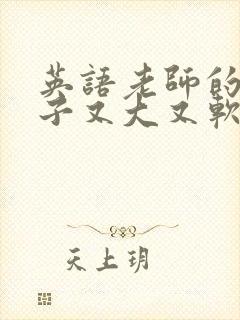 英語老師的
子又大又軟
天上玥